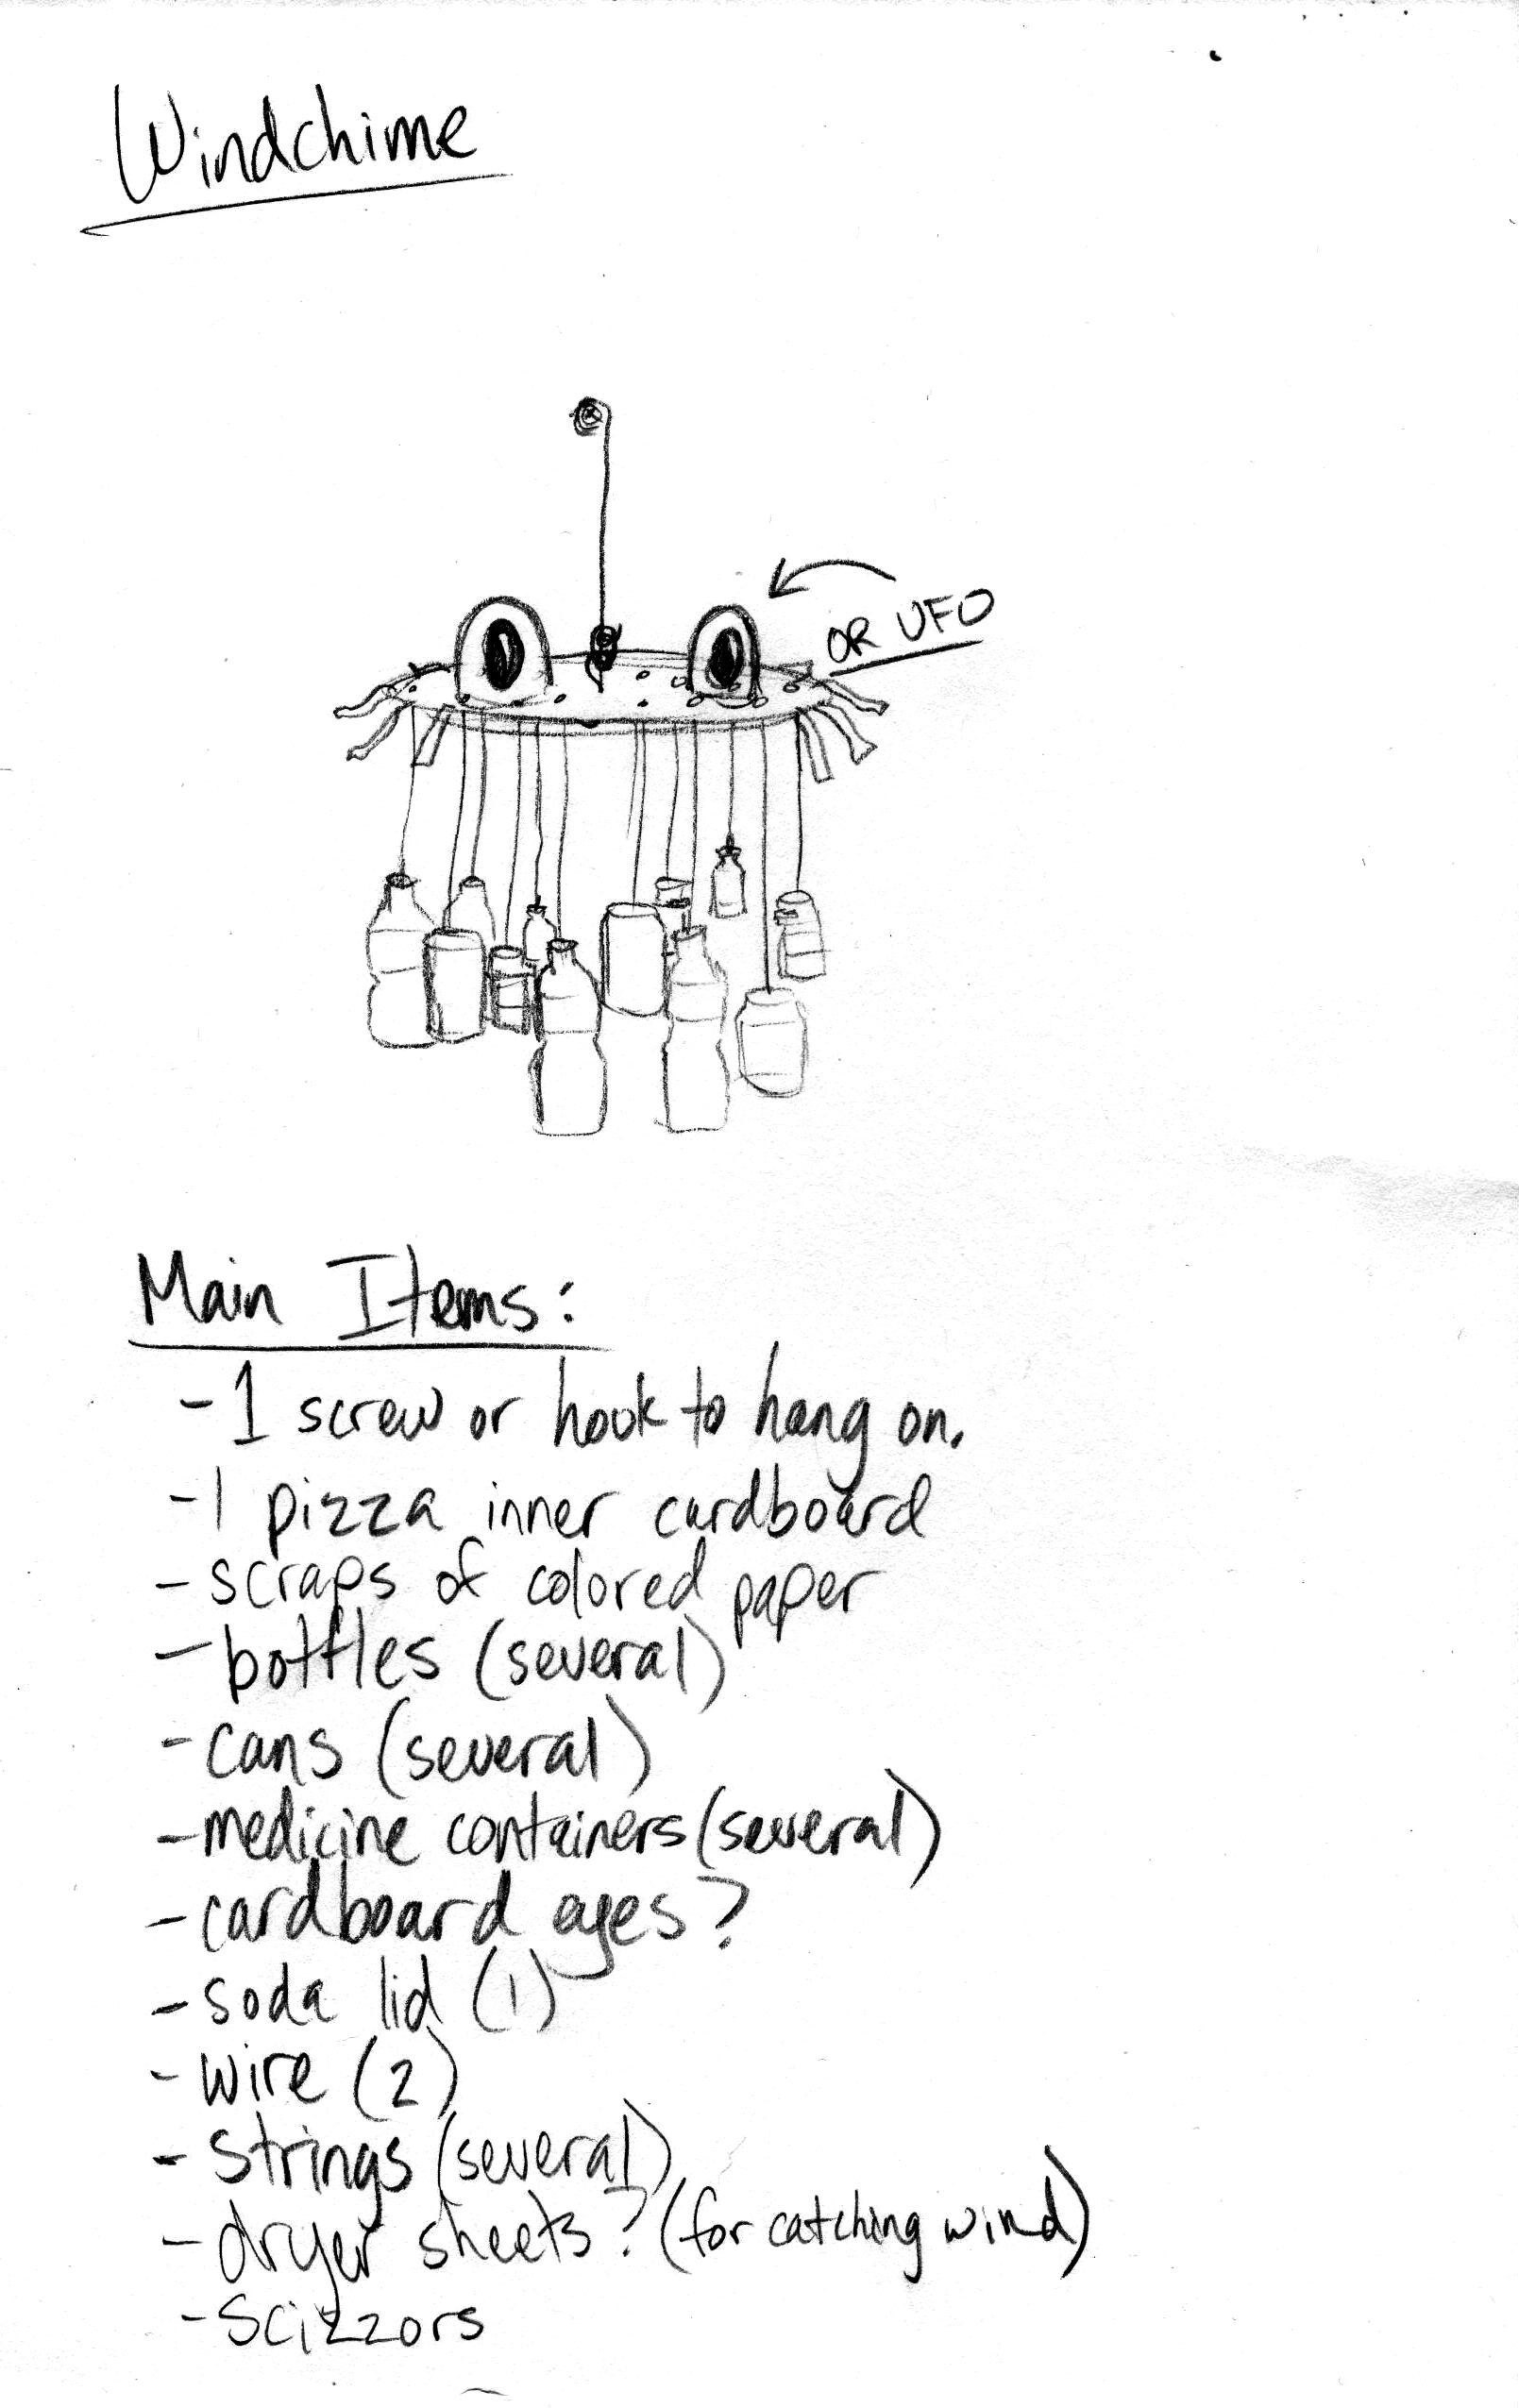 Windchime
OR UFO
Main Items:
- 1 screw or hook to hang on.
- 1 pizza inner cardboard
- scraps of colored paper
- bottles (several)
- cans (several)
- medicine containers (several)
- cardboard eyes?
- soda lid (1)
- wire (2)
- strings (several)
- dryer sheets? (for catching wind)
- Scizzors